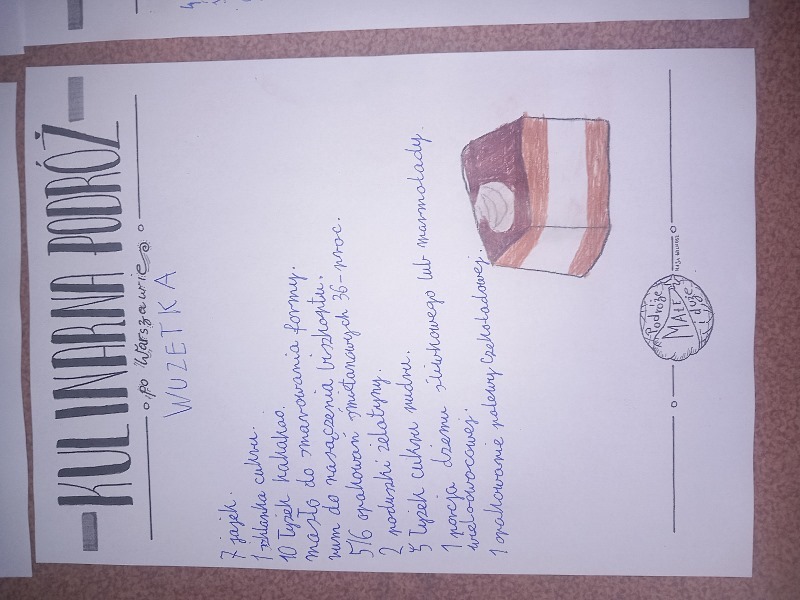 KULINARNA PODRÓŻ
po Warszawie
WUZETKA
7 jajek.
1 szklanka cukru.
10 łyżek kakakao.
masło do smarowania formy.
rum do nasączenia biszkoptu.
5/6 opakowań śmietanowych 36-proc.
2 poduszki żelatyny.
5 łyżek cukru pudru.
1 porcja dżemu śliwkowego lub marmolady
wieloowocowej.
1 opakowanie polewy czekoladowej.
Podróże
MAŁE
i duże